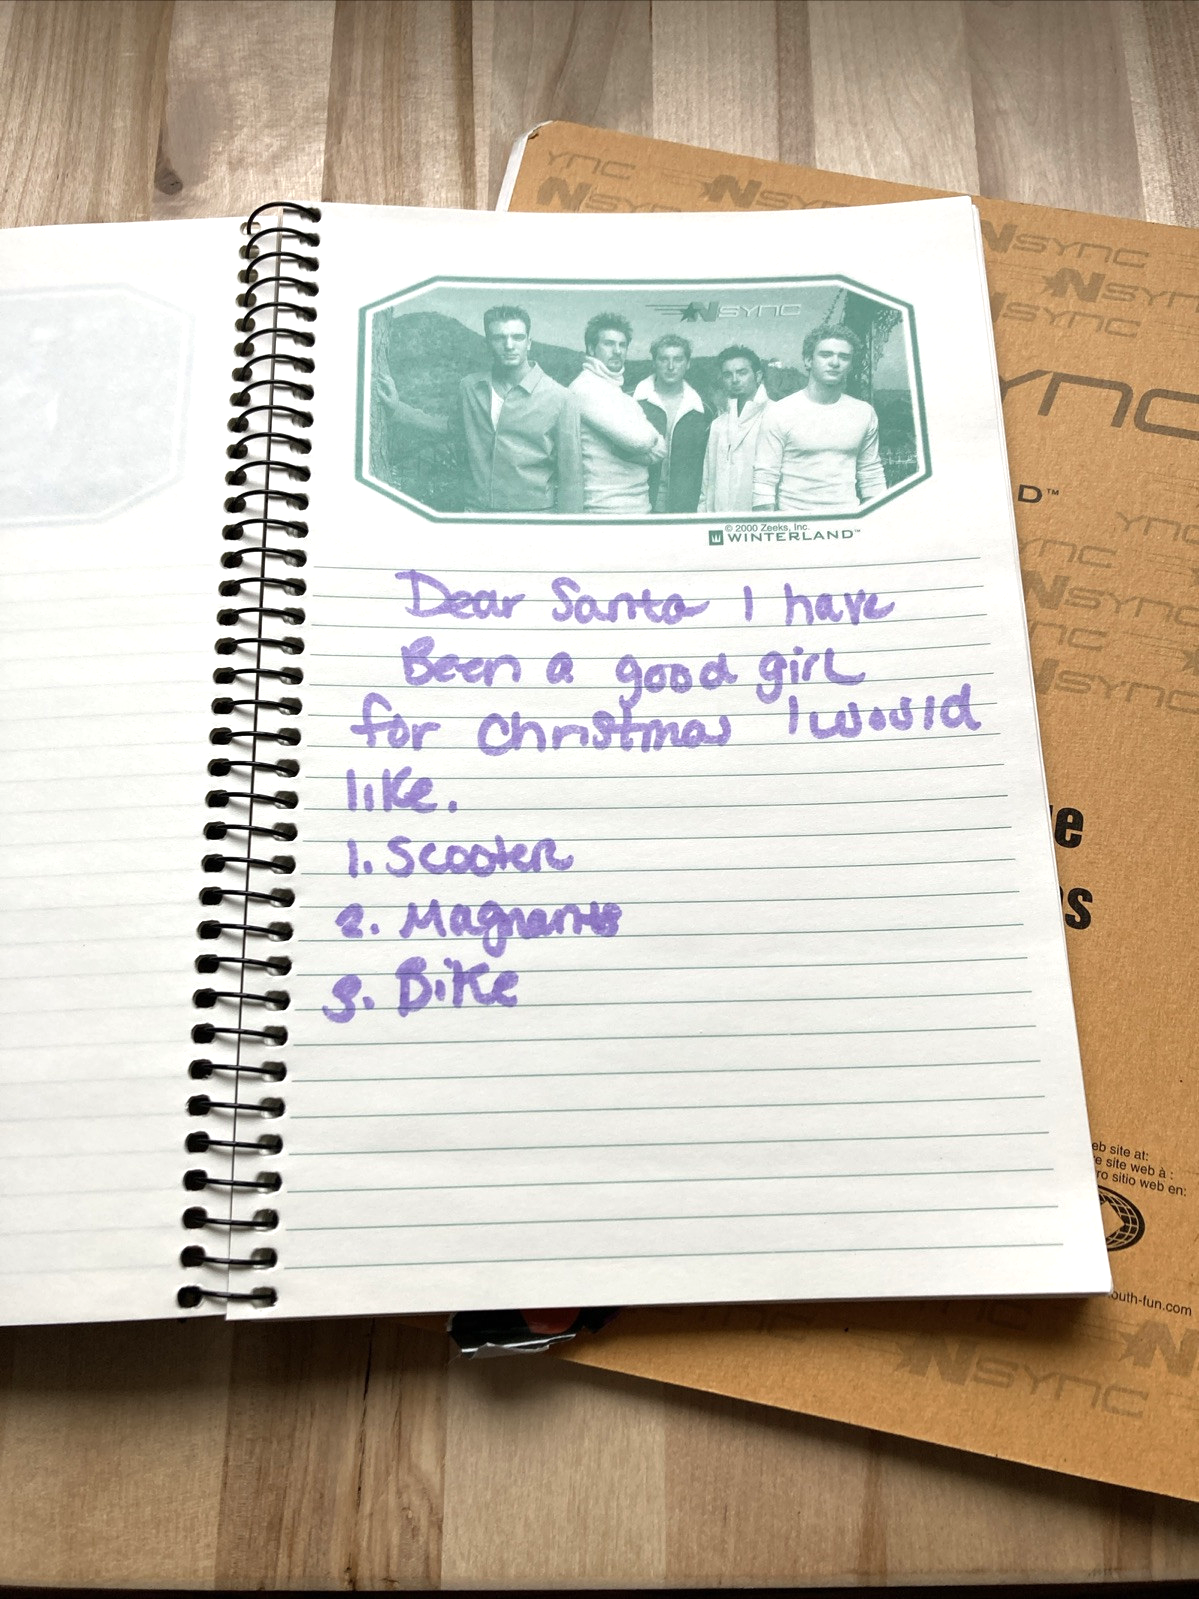 NSYNC
© 2000 Zeeks, Inc.
WINTERLAND™
Dear Santa I have
Been a good girl
for Christmas I would
like.
1. Scooter
2. Magnents
3. Bike
YNC NSYNC
NSYNC
NSYNC
NSYN
NSYNC
YNC
D™
YNC
NSYNC
NSYNC
e
s
eb site at:
e site web à :
ro sitio web en:
outh-fun.com
NSYNC